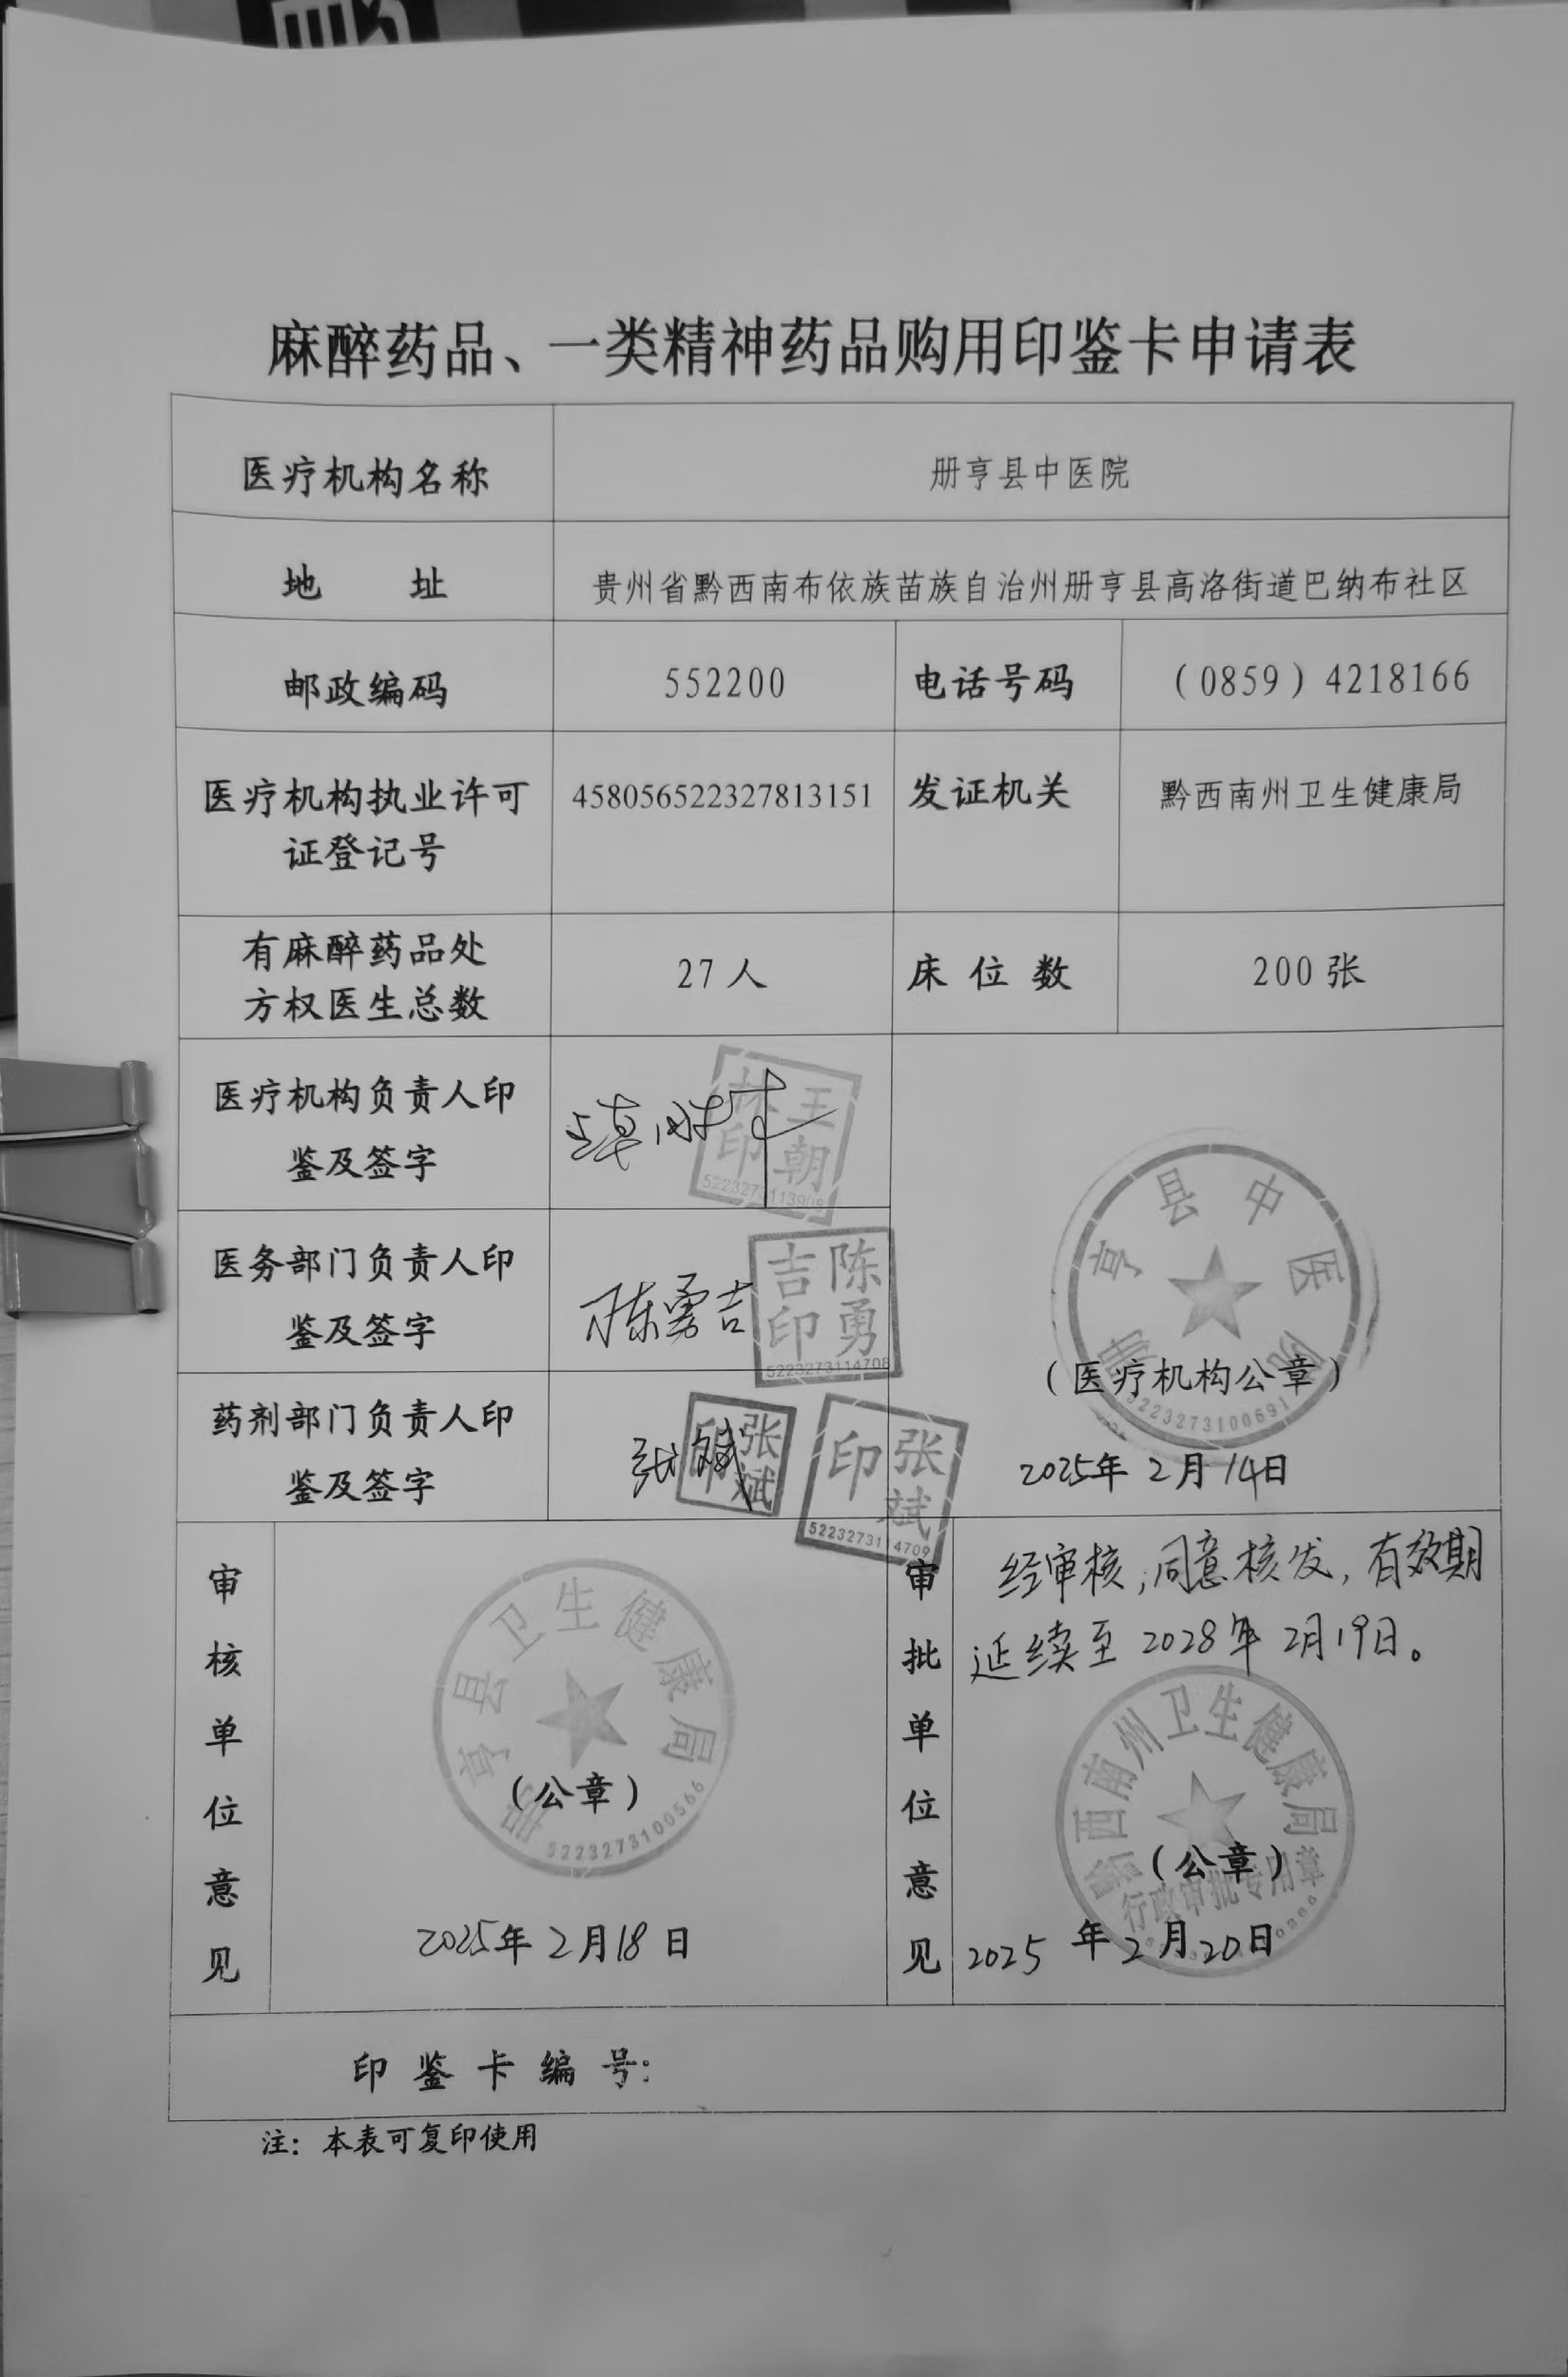 麻醉药品、一类精神药品购用印鉴卡申请表
医疗机构名称 册亨县中医院
地 址 贵州省黔西南布依族苗族自治州册亨县高洛街道巴纳布社区
邮政编码 552200 电话号码 (0859)4218166
医疗机构执业许可
证登记号 458056522327813151 发证机关 黔西南州卫生健康局
有麻醉药品处
方权医生总数 27人 床位数 200张
医疗机构负责人印
鉴及签字
王朝林印
5223273113908
医务部门负责人印
鉴及签字 陈勇吉
陈勇吉印
5223273114708
药剂部门负责人印
鉴及签字 张斌
张斌印
张斌印
5223273114709
册亨县中医院
(医疗机构公章)
5223273100691
2025年2月14日
审核单位意见
册亨县卫生健康局
(公章)
5223273100566
2025年2月18日
审批单位意见
经审核,同意核发,有效期
延续至2028年2月19日。
黔西南州卫生健康局
(公章)
行政审批专用章
2025年2月20日
印鉴卡编号:
注:本表可复印使用